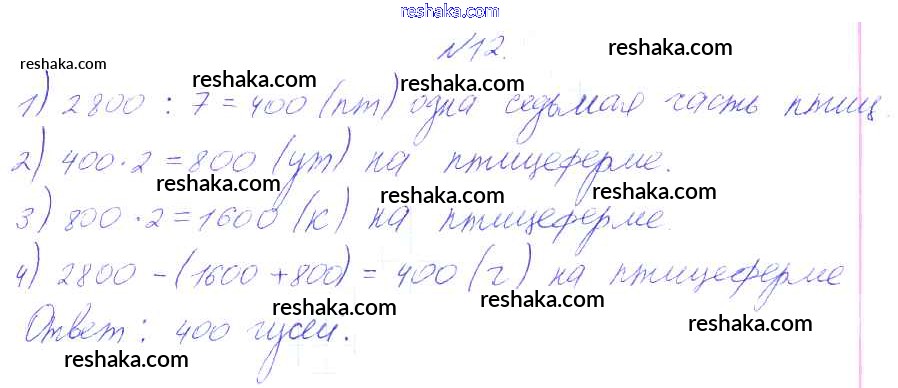 reshaka.com
№12.
reshaka.com
reshaka.com
reshaka.com
reshaka.com
1) 2800 : 7 = 400 (пт) одна седьмая часть птиц.
2) 400 · 2 = 800 (ут) на птицеферме.
reshaka.com
reshaka.com
reshaka.com
3) 800 · 2 = 1600 (к) на птицеферме.
4) 2800 - (1600 + 800) = 400 (г) на птицеферме
reshaka.com
reshaka.com
reshaka.com
Ответ: 400 гусей.
reshaka.com